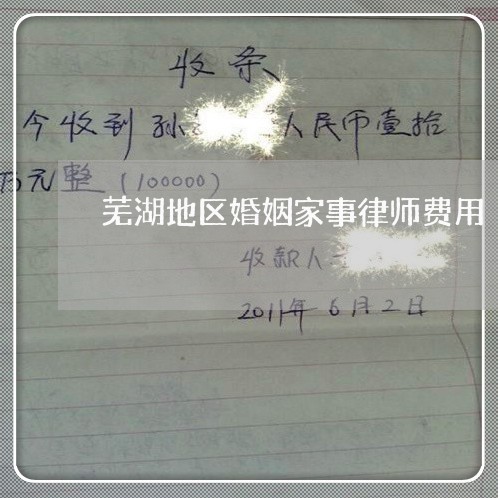 收条
今收到孙 人民币壹拾
万元整(100000)
芜湖地区婚姻家事律师费用
收款人
2011年6月2日